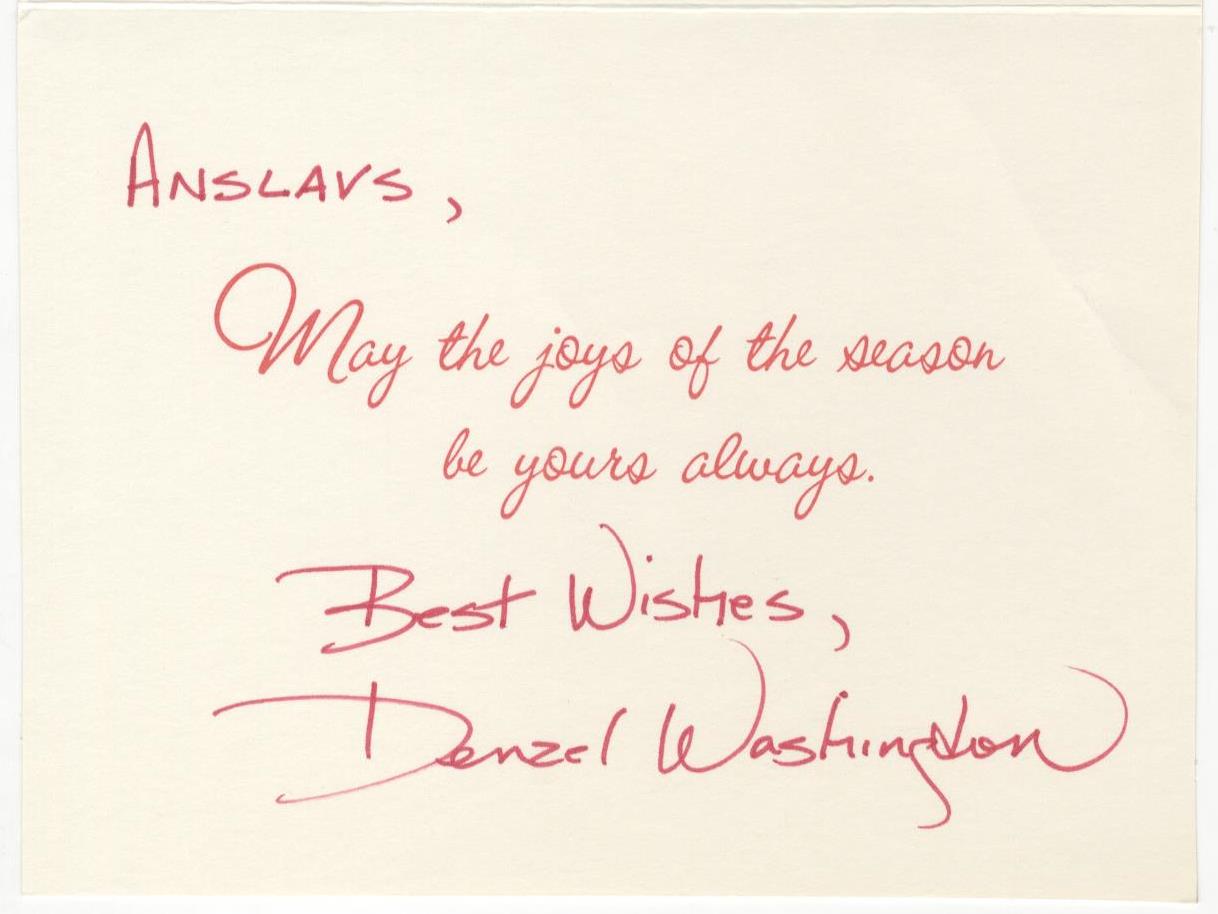 ANSLAVS,
May the joys of the season
be yours always.
Best Wishes,
Denzel Washington